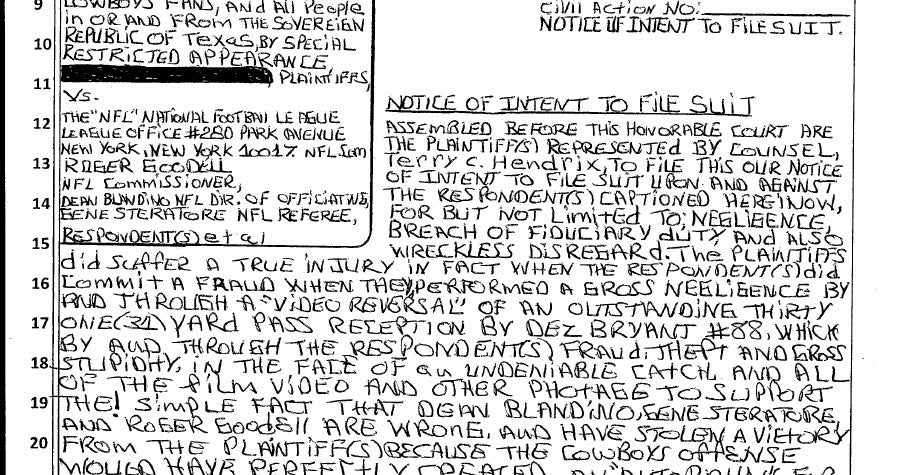 9
COWBOYS FANS, AND All People
in OR AND FROM THE SOVEREIGN
10
REPUBLIC OF TEXAS, BY SPECIAL
RESTRICTED APPEARANCE,
11
, PLAINTIFFS,
Vs.
12
THE "NFL" NATIONAL FOOTBALL LEAGUE
LEAGUE OFFICE #280 PARK AVENUE
NEW YORK, NEW YORK 10017 NFL.com
13
ROGER GOODELL
NFL COMMISSIONER,
14
DEAN BLANDINO NFL DIR. OF OFFICIATING,
GENE STERATORE NFL REFEREE,
15
RESPONDENT(S) et al
Civil Action No:
NOTICE OF INTENT TO FILE SUIT.
NOTICE OF INTENT TO FILE SUIT
ASSEMBLED BEFORE THIS HONORABLE COURT ARE
THE PLAINTIFF(S) REPRESENTED BY COUNSEL,
Terry C. Hendrix, TO FILE THIS OUR NOTICE
OF INTENT TO FILE SUIT UPON AND AGAINST
THE RESPONDENT(S) CAPTIONED HEREINOW,
FOR BUT NOT LIMITED TO: NEGLIGENCE,
BREACH OF FIDUCIARY DUTY, AND ALSO
WRECKLESS DISREGARD. The PLAINTIFFS
did SUFFER A TRUE INJURY IN FACT WHEN THE RESPONDENT(S) did
16
COMMIT A FRAUD WHEN THEY PERFORMED A GROSS NEGLIGENCE BY
AND THROUGH A "VIDEO REVERSAL" OF AN OUTSTANDING THIRTY
17
ONE (31) YARD PASS RECEPTION BY DEZ BRYANT #88, WHICH
BY AND THROUGH THE RESPONDENT(S) FRAUD, THEFT AND GROSS
18
STUPIDITY, IN THE FACE OF an UNDENIABLE CATCH AND ALL
OF THE FILM VIDEO AND OTHER PHOTAGE TO SUPPORT
19
THE! SIMPLE FACT THAT DEAN BLANDINO, GENE STERATORE
AND ROGER GOODELL ARE WRONG, AND HAVE STOLEN A VICTORY
20
FROM THE PLAINTIFF(S) BECAUSE THE COWBOYS OFFENSE
WOULD HAVE PERFECTLY CREATED